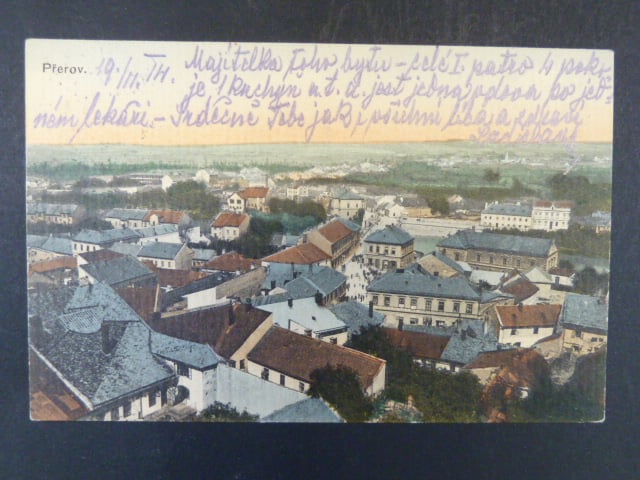 Přerov. 19/II. 14. Majitelka toho bytu - celé I. patro 4 poko
je 1 kuchyn a t. d. jest jedna vdova po jed-
ném lékaři - Srdečně Tebe jak i všechny líbá a zdraví